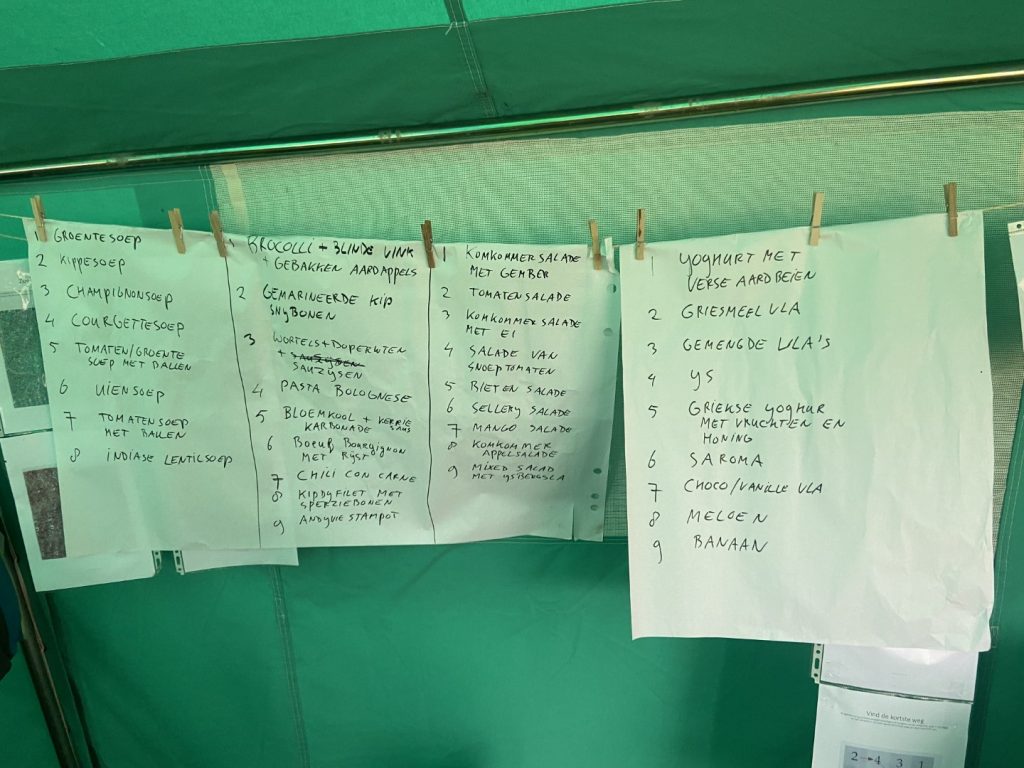 1 GROENTESOEP
2 KIPPESOEP
3 CHAMPIGNONSOEP
4 COURGETTESOEP
5 TOMATEN/GROENTE
SOEP MET BALLEN
6 UIENSOEP
7 TOMATENSOEP
MET BALLEN
8 INDIASE LENTILSOEP
1 BROCOLLI + BLINDE VINK
+ GEBAKKEN AARDAPPELS
2 GEMARINEERDE KIP
SNYBONEN
3 WORTELS+DOPERWTEN
+
SAUZYSEN
4 PASTA BOLOGNESE
5 BLOEMKOOL + KERRIE
KARBONADE SAUS
6 Boeuf Bourgignon
MET RYST
7 CHILI CON CARNE
8 KIPDYFILET MET
SPERZIEBONEN
9 ANDYVIE STAMPOT
1 KOMKOMMERSALADE
MET GEMBER
2 TOMATENSALADE
3 KOMKOMMERSALADE
MET EI
4 SALADE VAN
SNOEPTOMATEN
5 BIETEN SALADE
6 SELLERY SALADE
7 MANGO SALADE
8 KOMKOMMER
APPELSALADE
9 MIXED SALAD
MET YSBERGSLA
1 YOGHURT MET
VERSE AARDBEIEN
2 GRIESMEELVLA
3 GEMENGDE VLA'S
4 YS
5 GRIEKSE YOGHUR
MET VRUCHTEN EN
HONING
6 SAROMA
7 CHOCO/VANILLE VLA
8 MELOEN
9 BANAAN
Vind de kortste weg
2 → 4 3 1